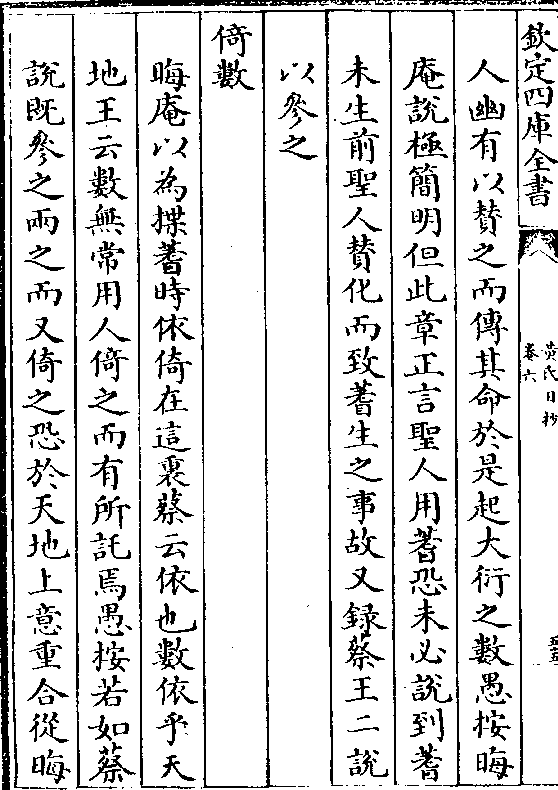 欽定四庫全書
黃氏日抄
卷六
人幽有以賛之而傳其命於是起大衍之數愚按晦
庵說極簡明但此章正言聖人用蓍恐未必說到蓍
未生前聖人賛化而致蓍生之事故又錄蔡王二說
以參之
倚數
晦庵以為揲蓍時依倚在這裏蔡云依也數依乎天
地王云數無常用人倚之而有所託焉愚按若如蔡
說既參之兩之而又倚之恐於天地上意重合從晦